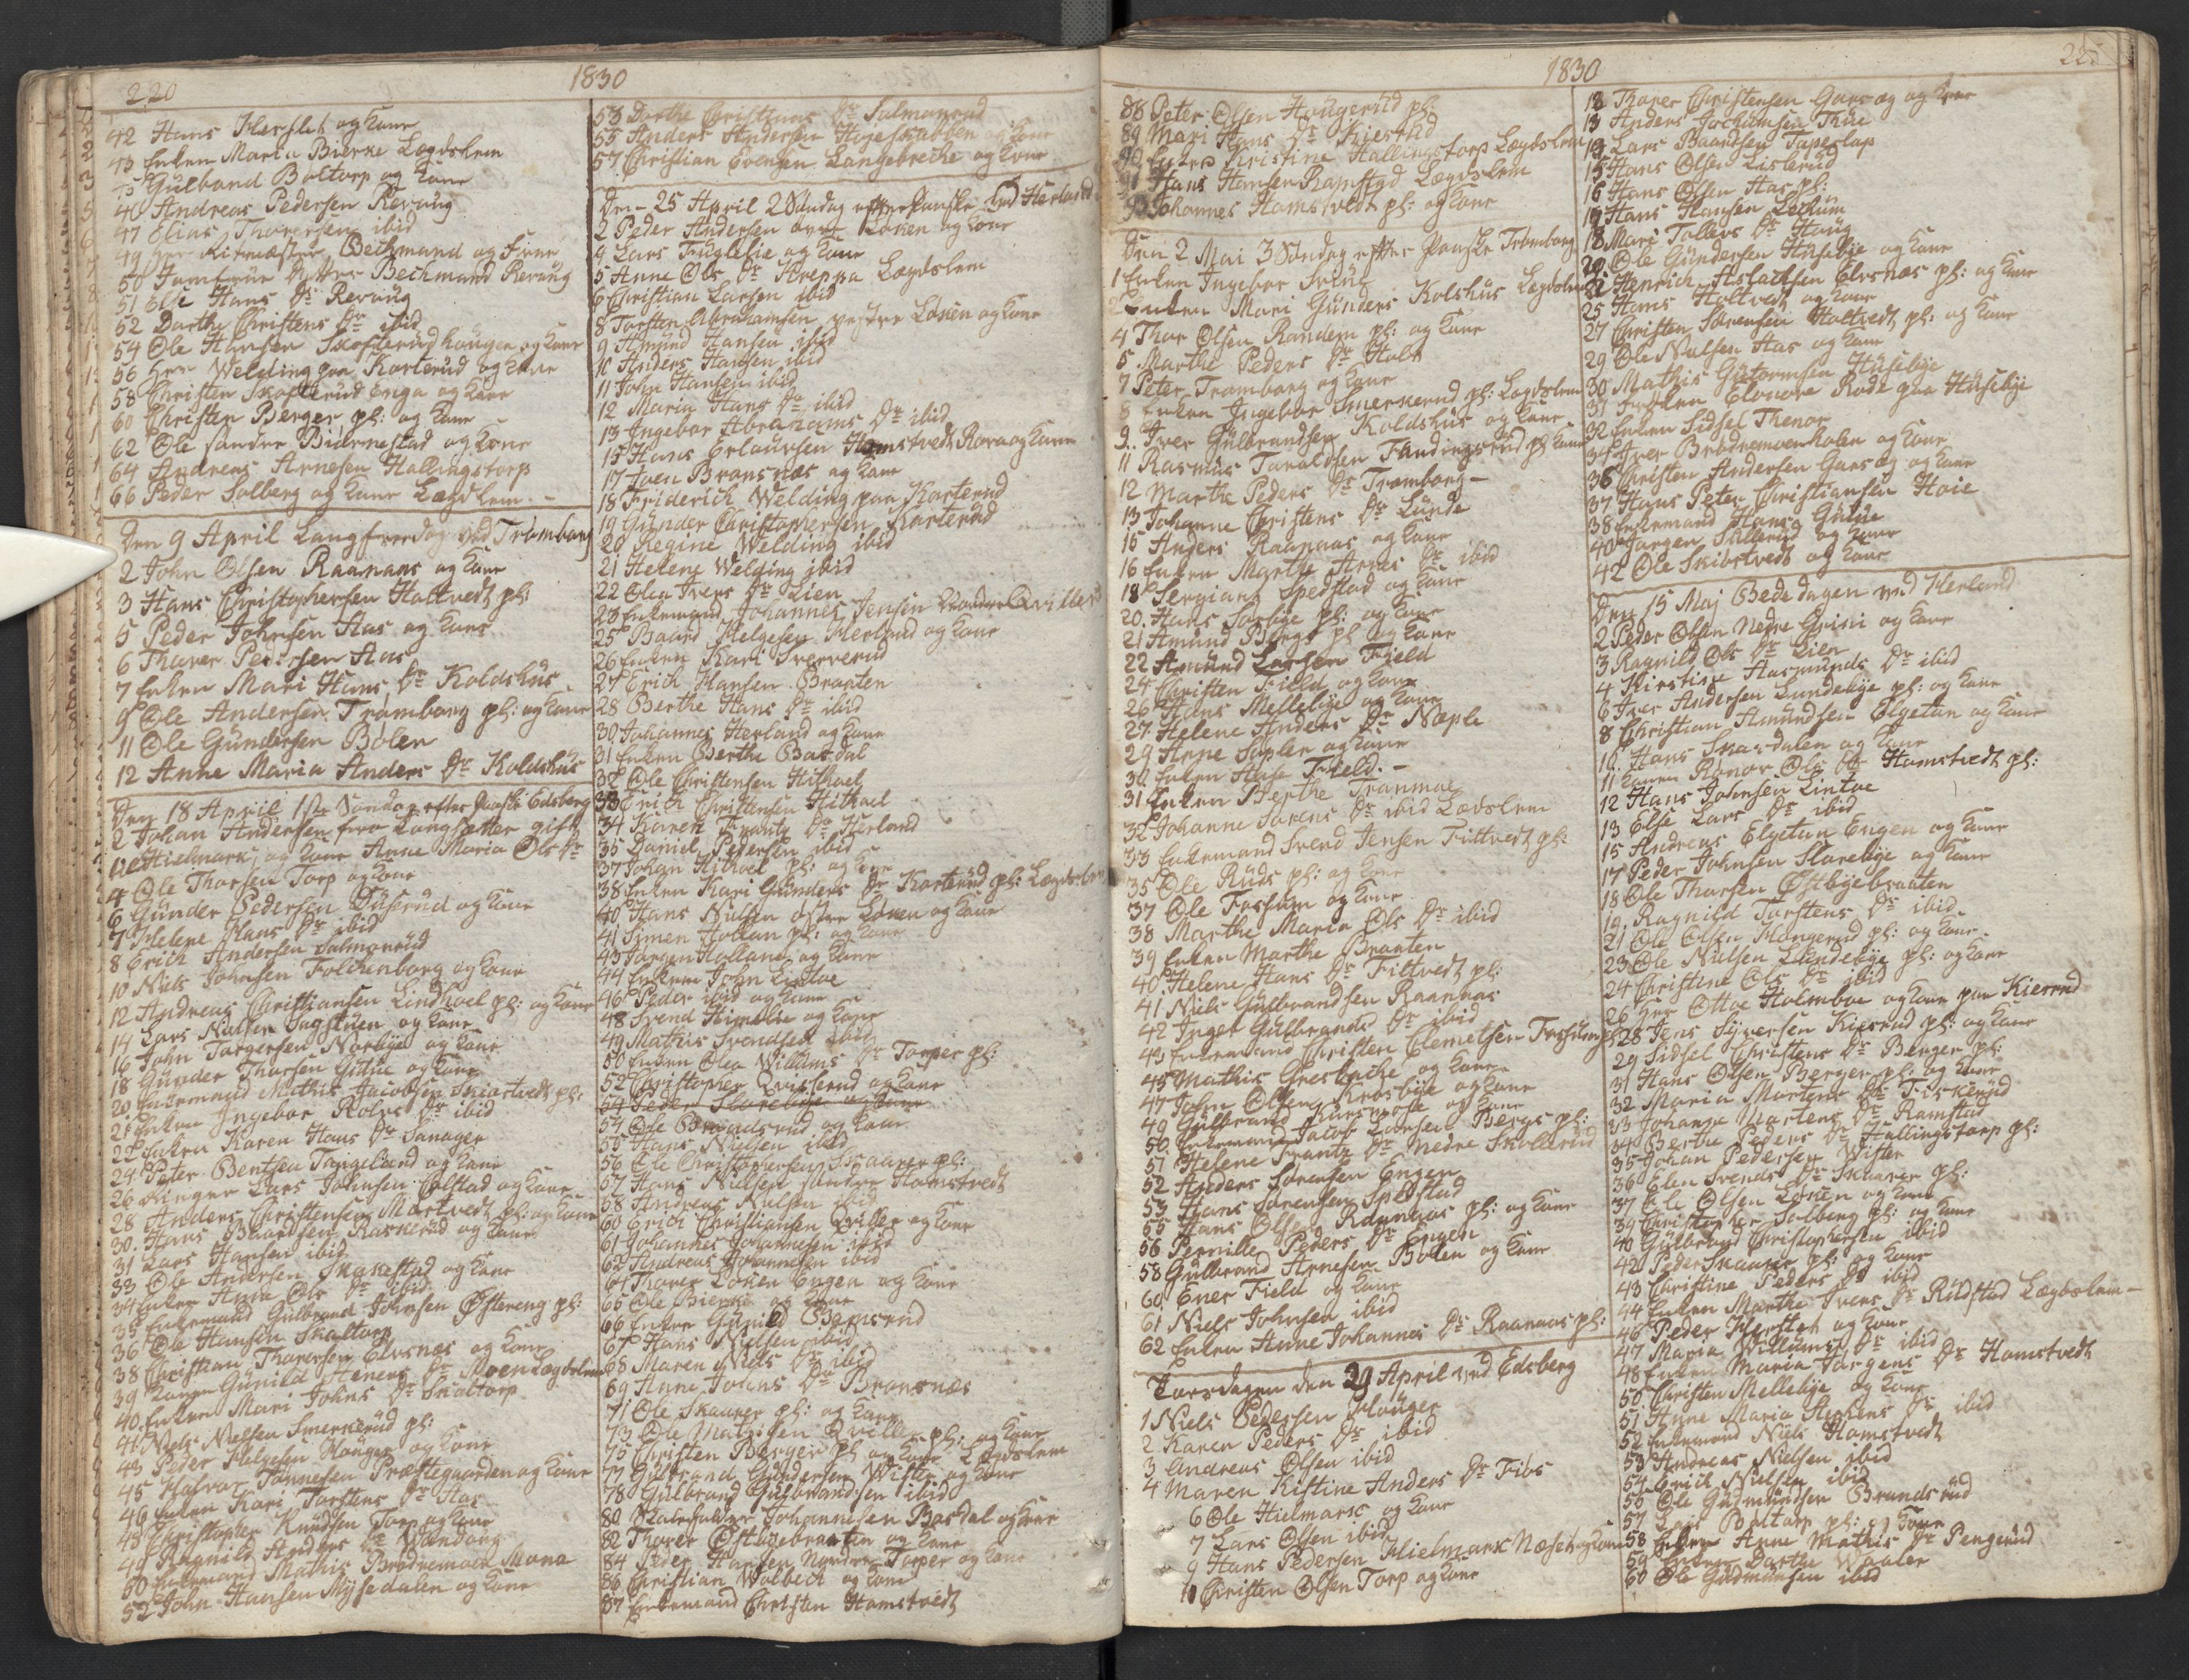 220
1830
42 Hans Herslet og Kone
43 Enken Maria Bierke Lægdslem
45 Gulbrand Boltorp og Kone
46 Andreas Pedersen Revaug
47 Elias Thoresen ibid
49 Herr Ritmæster Bechmand og Frue
50 Jomfrue Bechmand Revaug
51 Else Hans Dr Revaug
52 Dorthe Christens Dr ibid
54 Ole Hansen Skofterudhaugen og Kone
56 Herr Welding paa Karterud og Kone
58 Christen Skofterud Enga og Kone
60 Christen Berger pl: og Kone
62 Ole søndre Biørnestad og Kone
64 Andreas Arnesen Hallingstorp
66 Peder Solberg og Kone Lægdslem
Den 9 April Langfredag ved Trømborg
2 John Olsen Raanaas og Kone
3 Hans Christophersen Holtvedt pl:
5 Peder Johnsen Aas og Kone
6 Thorer Pedersen Aas
7 Enken Mari Hans Dr Koldshus
9 Ole Andersen Tromborg pl: og Kone
11 Ole Gundersen Bolen
12 Anne Maria Anders Dr Koldshus
Den 18 April 1ste Søndag efter Paaske Edsberg
2 Johan Andersen fra Langsætter gift
Hielmark, og Kone Anne Maria Ols Dr
4 Ole Thorsen Torp og Kone
6 Gunder Pedersen Duserud og Kone
7 Helene Hans Dr ibid
8 Erich Andersen Salmonrud
10 Niels Johnsen Folchenborg og Kone
12 Andreas Christiansen Lindhoel pl: og Kone
14 Lars Nielsen Sagstuen og Kone
16 John Torgersen Norbye og Kone
18 Gunder Thorsen Guthu og Kone
20 Enkemand Mathis Jacobsen Skiortvedt pl:
21 Enken Ingebor Rolvs Dr ibid
22 Enken Karen Hans Dr Sanager
24 Peter Bentsen Tangeland og Kone
26 Ringer Lars Johnsen Colstad og Kone
28 Anders Christensen Mortvedt pl: og Kone
30 Hans Baardsen Raskerud og Kone
31 Lars Hansen ibid
33 Ole Andersen Skakestad og Kone
34 Enken Anne Ols Dr ibid
35 Enkemand Gulbrand Johnsen Østereng pl:
36 Ole Hansen Skaltorp
38 Christian Thoresen Elvsnes og Kone
39 Konen Gunild Dr Moen Lægdslem
40 Enken Mari Johns Dr Skaltorp
41 Niels Nielsen Smerkerud pl:
43 Peder Helgesen Hauger og Kone
45 Halvor Tønnesen Præstegaarden og Kone
46 Enken Kari Torstens Dr Aas
48 Christopher Knudsen Torp og Kone
49 Ragnild Anders Dr
50 Enkemand Mathis Brødremoen Mona
52 John Hansen Mysedalen og Kone
53 Dorthe Christians Dr Salmonrud
55 Anders Andersen Hegeskabben og Kone
57 Christian Evensen Langebreche og Kone
Den 25 April 2 Søndag efter Paaske ved Herland
2 Peder Andersen øvre Løken og Kone
4 Lars Fuglelie og Kone
5 Anne Ols Dr Kreppa Lægdslem
6 Christian Larsen ibid
8 Torsten Abrahamsen vestre Løken og Kone
9 Amund Hansen ibid
10 Anders Hansen ibid
11 John Hansen ibid
12 Maria Hans Dr ibid
13 Ingebor Abrahams Dr ibid
15 Hans Erlandsen Homstvedt Rova og Kone
17 Iven Bransnæs og Kone
18 Friderich Welding paa Karterud
19 Gunder Christophersen Karterud
20 Regine Welding ibid
21 Helene Welding ibid
22 Olea Ivers Dr Lien
23 Enkemand Johannes Jensen nordre Qviller
25 Baard Helgesen Herland og Kone
26 Enken Kari Sververud
27 Erich Hansen Braaten
28 Berthe Hans Dr ibid
30 Johannes Herland og Kone
31 Enken Berthe Basdal
32 Ole Christensen Hithoel
33 Erich Christensen Hithoel
34 Karen Frantz Dr Herland
35 Daniel Pedersen ibid
37 Johan Hithoel pl: og Kone
38 Enken Kari Gunders Dr Karterud pl: Lægdslem
40 Hans Nielsen østre Løken og Kone
41 Simen Hollan pl: og Kone
43 Jørgen Holland og Kone
44 Enken John Lintoe
46 Peder ibid og Kone
48 Svend Himelie og Kone
49 Mathis Svendsen ibid
50 Enken Olea Willums Dr Torper pl:
52 Christopher Qvislerud og Kone
54 Peder Slorebye og Kone
54 Ole Brandsrud og Kone
55 Hans Nielsen ibid
56 Ole Christophersen Skaarer pl:
57 Hans Nielsen søndre Homstvedt
58 Andreas Nielsen ibid
60 Erich Christiansen Qviller og Kone
61 Johannes Johannesen ibid
62 Andreas Johannesen ibid
64 Thorer Løken Engen og Kone
65 Ole Bierke og Kone
66 Enken Gunild Bamsrud
67 Hans Nielsen ibid
68 Maren Niels Dr ibid
69 Anne Johns Dr Bransnæs
71 Ole Skaarer pl: og Kone
73 Ole Mathisen Qviller pl: og Kone
75 Christen Berger pl og Kone Lægdslem
77 Gulbrand Gundersen Wister og Kone
78 Gulbrand Gulbrandsen ibid
80 Johannesen Basdal og Kone
82 Thorer Østbyebraaten og Kone
84 Peder Hansen Nordre Torper og Kone
86 Christian Wolbech og Kone
87 Enkemand Christen Homstvedt
1830
88 Peter Olsen Haugerud pl:
89 Mari Hans Dr Kierrud
90 Enken Kirstine Hallingstorp Lægdslem
91 Hans Hansen Ramstad Lægdslem
93 Johannes Homstvedt pl: og Kone
Den 2 Mai 3 Søndag efter Paaske Trømborg
1 Enken Ingebor
2 Enken Mari Gunders Kolshus Lægdslem
4 Thor Olsen Randem pl: og Kone
5 Marthe Peders Dr Holt
7 Peter Tromborg og Kone
8 Enken Ingebor Smerkerud pl: Lægdslem
9 Iver Gulbrandsen Koldshus og Kone
11 Rasmus Taraldsen Fandingsrud pl Kone
12 Marthe Peders Dr Tromborg
13 Johanne Christens Dr Lunde
15 Anders Raanaas og Kone
16 Enken Marthe Arnes Dr ibid
18 Sergiant Spedstad og Kone
20 Hans Sørbye pl: og Kone
21 Amund Bergs pl og Kone
22 Amund Larsen Field
24 Christen Field og Kone
26 Hans Mellebye og Kone
27 Helene Anders Dr Næple
29 Arne Saplen og Kone
30 Enken Aase Field
31 Enken Berthe Tranmoe
32 Johanne Sørens Dr ibid Lædslem
33 Enkemand Svend Jensen Fittvedt pl:
35 Ole Ruds pl: og Kone
37 Ole Fossum og Kone
38 Marthe Maria Ols Dr ibid
39 Enken Marthe Braaten
40 Helene Hans Dr Fittvedt pl:
41 Niels Gulbrandsen Raanaas
42 Inger Gulbrands Dr ibid
43 Enkemand Christen Clemetsen Fossum pl
45 Mathis Greslyche og Kone
47 John Olsen Krosbye og Kone
49 Gulbrand og Kone
50 Enkemand Jacob Larsen Bergs pl:
51 Helene Frantz Dr Nedre Skollerud
52 Anders Sørensen Engen
53 Hans Sørensen Spedstad
55 Hans Olsen Raanaas pl: og Kone
56 Pernille Peders Dr Engen
58 Gulbrand Arnesen Bolen og Kone
60 Ener Field og Kone
61 Niels Johnsen ibid
62 Enken Anne Johannes Dr Raanaas pl:
Torsdagen den 29 April ved Edsberg
1 Niels Pedersen Hauger
2 Karen Peders Dr ibid
3 Andreas Olsen ibid
4 Maren Kistine Anders Dr Fiøs
6 Ole Hielmark og Kone
7 Lars Olsen ibid
9 Hans Pedersen Hielmark Næset og Kone
11 Christen Olsen Torp og Kone
12 Thorer Christensen Garsæg og Kone
13 Anders Jochumsen Thue
14 Lars Baardsen Tapeslap
15 Hans Olsen Listerud
16 Hans Olsen Aas pl:
17 Hans Hansen Lekum
18 Mari Tollevs Dr Haug
20 Ole Gundersen Husebye og Kone
22 Henrich Aslachsen Elvsnæs pl: og Kone
25 Hans Holtvedt og Kone
27 Christen Sørensen Holtvedt pl: og Kone
29 Ole Nielsen Aas og Kone
30 Mathis Gutormsen Husebye
31 Frøken Elonore Rode paa Husebye
32 Enken Sidsel Thenor
34 Iver Brødremoenholen og Kone
36 Christen Andersen Garsæg og Kone
37 Hans Peter Christiansen Hoie
38 Enkemand Hans Gulue
40 Jørgen Sletterud og Kone
42 Ole Skibstvedt og Kone
Den 15 Maj Bededagen ved Herland
2 Peder Olsen Nedre Grini og Kone
3 Ragnild Ols Dr Lien
4 Kirstine Aasmunds Dr ibid
6 Iver Andersen Lundebye pl: og Kone
8 Christian Amundsen Elgetun og Kone
10 Hans Skarsdalen og Kone
11 Konen Ronor Ols Dr Homstvedt pl:
12 Hans Johnsen Lintoe
13 Else Lars Dr ibid
15 Andreas Elgetun Engen og Kone
17 Peder Johnsen Slorebye og Kone
18 Ole Thorsen Østbyebraaten
19 Ragnild Torstens Dr ibid
21 Ole Olsen Haugerud pl: og Kone
23 Ole Nielsen Lundebye pl: og Kone
24 Christine Ols Dr ibid
26 Herr Ottoe Holmboe og Kone paa Kierrud
28 Jens Syversen Kierrud pl: og Kone
29 Sidsel Christens Dr Berger pl:
31 Hans Olsen Berger pl: og Kone
32 Maria Mortens Dr Fiskerud
33 Johanne Mortens Dr Ramstad
34 Berthe Peders Dr Hallingstorp pl:
35 Johan Pedersen Wister
36 Elen Svends Dr Skaarer pl:
37 Ole Olsen Løken og Kone
39 Christopher Solberg pl: og Kone
40 Gulbrand Christophersen ibid
42 Peder Skaarer pl: og Kone
43 Christine Peders Dr ibid
44 Enken Marthe Ivers Dr Rudstad Lægdslem
46 Peder Herslet og Kone
47 Maria Willums Dr ibid
48 Enken Maria Jørgens Dr Homstvedt
50 Christen Mellebye og Kone
51 Anne Maria Dr ibid
52 Enkemand Niels Homstvedt
53 Andreas Nielsen ibid
54 Erich Nielsen ibid
56 Ole Gudmundsen Brandsrud
57 Lars Boltorp pl: og Kone
58 Enken Anne Mathis Dr Pengerud
59 Enken Dorthe Waaler
60 Ole Gudmunsen ibid